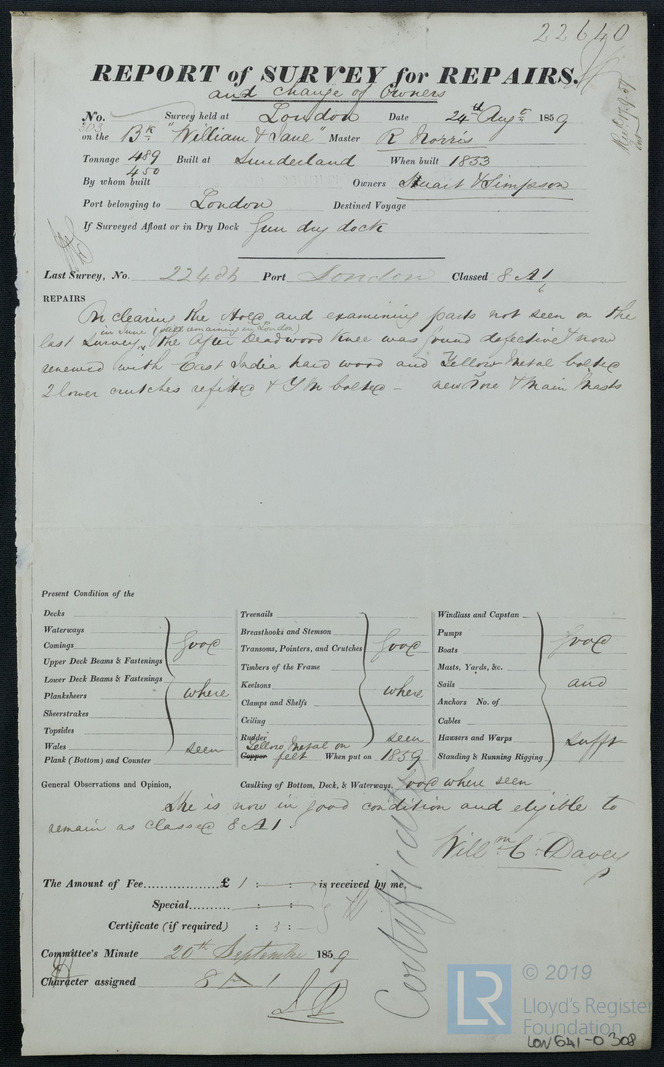 22640
REPORT of SURVEY for REPAIRS.
and change of Owners
No. 303 Survey held at London Date 24th Augt 1859
on the Bk "William & Jane" Master R Norris
Tonnage 489 Built at Sunderland When built 1833
450
By whom built Owners Stuart & Simpson
Port belonging to London Destined Voyage
If Surveyed Afloat or in Dry Dock Gun dry dock
Last Survey, No. Port London Classed 8 A1
REPAIRS
On clearing the Hold and examining parts not seen on the
in June (still remaining in London)
last Survey, the After Deadwood Knee was found defective & now
renewed with East India hard wood and Yellow Metal bolted
2 lower crutches refitted & Y M bolted – new Fore & Main Masts
Present Condition of the
Decks
Waterways
Comings good
Upper Deck Beams & Fastenings
Lower Deck Beams & Fastenings
Planksheers where
Sheerstrakes
Topsides
Wales seen
Plank (Bottom) and Counter
Treenails
Breasthooks and Stemson
Transoms, Pointers, and Crutches good
Timbers of the Frame
Keelsons where
Clamps and Shelfs
Ceiling
Rudder seen
Yellow Metal on
Copper felt When put on 1859
Windlass and Capstan
Pumps
Boats good
Masts, Yards, &c.
Sails and
Anchors No. of
Cables
Hawsers and Warps sufft
Standing & Running Rigging
General Observations and Opinion, Caulking of Bottom, Deck, & Waterways. good where seen
She is now in good condition and eligible to
remain as classed 8 A1.
Willm C. Davey
The Amount of Fee £ 1 : – : – is received by me,
Special : :
Certificate (if required) : 3 : –
Certificate
Committee's Minute 20th September 1859
Character assigned 8 A 1
LR © 2019
Lloyd's Register
Foundation
LON641-0308